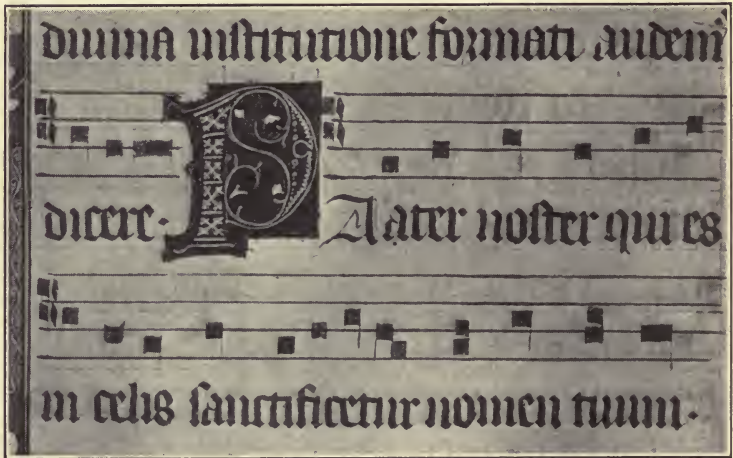 diuina institutione formati audem'
dicere. PAater noster qui es
in celis sanctificetur nomen tuum.